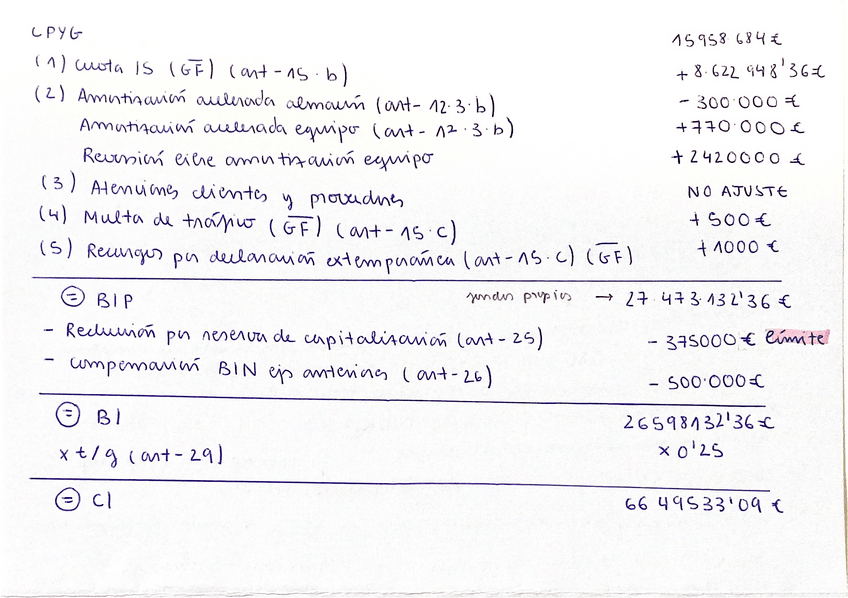 CPYG 15958 684 €
(1) Cuota IS (GF) (art-15.b) +8.622 948'36€
(2) Amortización acelerada almacén (art-12.3.b) - 300.000 €
Amortización acelerada equipo (art-12.3.b) +770.000 €
Reversión cierre amortización equipo +2420000 €
(3) Atenciones clientes y proveedores NO AJUSTE
(4) Multa de tráfico (GF) (art-15.c) +500€
(5) Recargos por declaración extemporánea (art-15.c) (GF) +1000 €
= BIP fondos propios → 27.473.132'36 €
- Reducción por reserva de capitalización (art-25) - 375000 € límite
- compensación BIN ejs anteriores (art-26) - 500.000€
= BI 26598132'36€
x t/g (art-29) x 0'25
= CI 66 49533'09 €